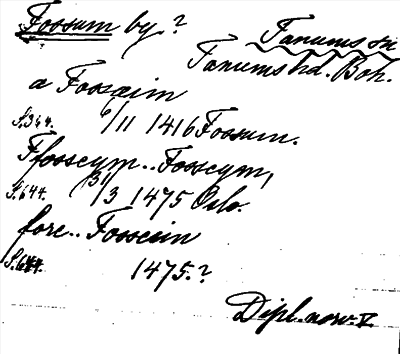 Fossum by?
Tanums sn
Tanums hd. Boh.
a Fossæim
S.364. 6/11 1416 Fossum.
Ffosseym.. Fosseym,
S.644. 13/3 1475 Oslo.
fore.. Fossein
S.644. 1475.?
Dipl. norv. V.